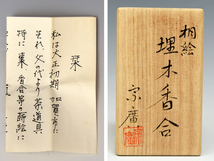 栞
私は大正初期 加賀に
それ、父の代より茶道具
特に棗 香合等の蒔絵に
桐絵
埋木香合
宗廣